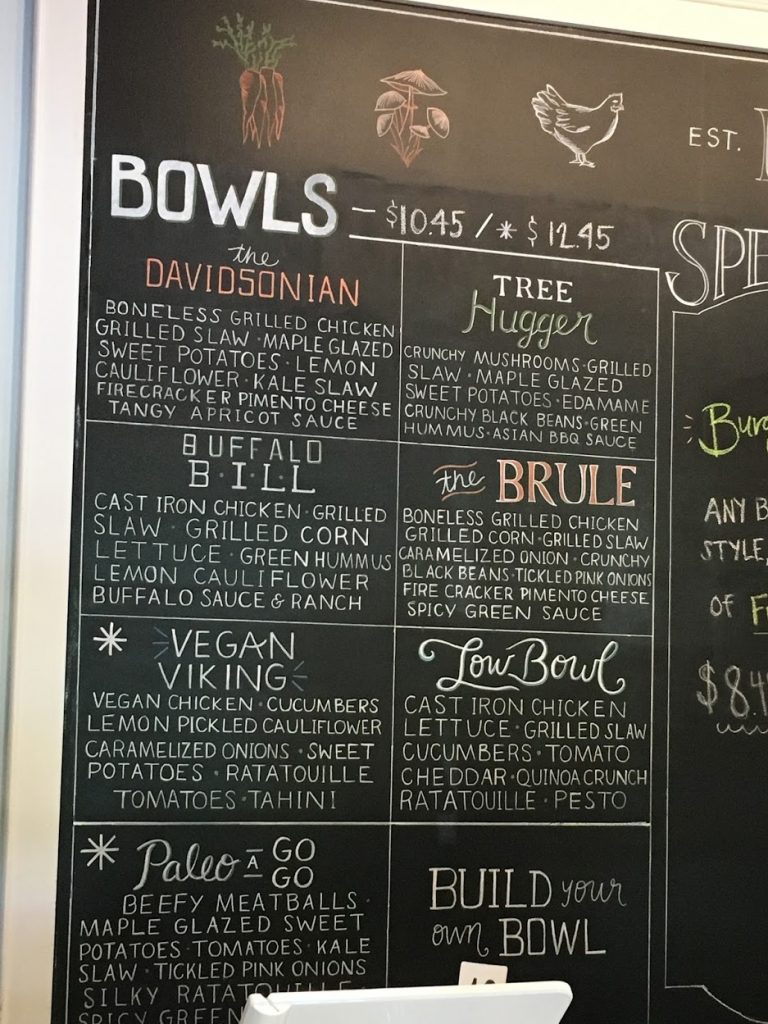 BOWLS - $10.45 / * $12.45
the
DAVIDSONIAN
BONELESS GRILLED CHICKEN
GRILLED SLAW · MAPLE GLAZED
SWEET POTATOES · LEMON
CAULIFLOWER · KALE SLAW
FIRECRACKER PIMENTO CHEESE
TANGY APRICOT SAUCE
TREE
Hugger
CRUNCHY MUSHROOMS · GRILLED
SLAW · MAPLE GLAZED
SWEET POTATOES · EDAMAME
CRUNCHY BLACK BEANS · GREEN
HUMMUS · ASIAN BBQ SAUCE
BUFFALO
B·I·L·L
CAST IRON CHICKEN · GRILLED
SLAW · GRILLED CORN
LETTUCE · GREEN HUMMUS
LEMON CAULIFLOWER
BUFFALO SAUCE & RANCH
the BRULE
BONELESS GRILLED CHICKEN
GRILLED CORN · GRILLED SLAW
CARAMELIZED ONION · CRUNCHY
BLACK BEANS · TICKLED PINK ONIONS
FIRE CRACKER PIMENTO CHEESE
SPICY GREEN SAUCE
* VEGAN
VIKING
VEGAN CHICKEN · CUCUMBERS
LEMON PICKLED CAULIFLOWER
CARAMELIZED ONIONS · SWEET
POTATOES · RATATOUILLE
TOMATOES · TAHINI
Low Bowl
CAST IRON CHICKEN
LETTUCE · GRILLED SLAW
CUCUMBERS · TOMATO
CHEDDAR · QUINOA CRUNCH
RATATOUILLE · PESTO
* Paleo A GO
GO
BEEFY MEATBALLS ·
MAPLE GLAZED SWEET
POTATOES · TOMATOES · KALE
SLAW · TICKLED PINK ONIONS
SILKY RATATOUILLE
SPICY GREEN
BUILD your
own BOWL
EST.
SPE
Burg
ANY B
STYLE,
OF F
$8.4